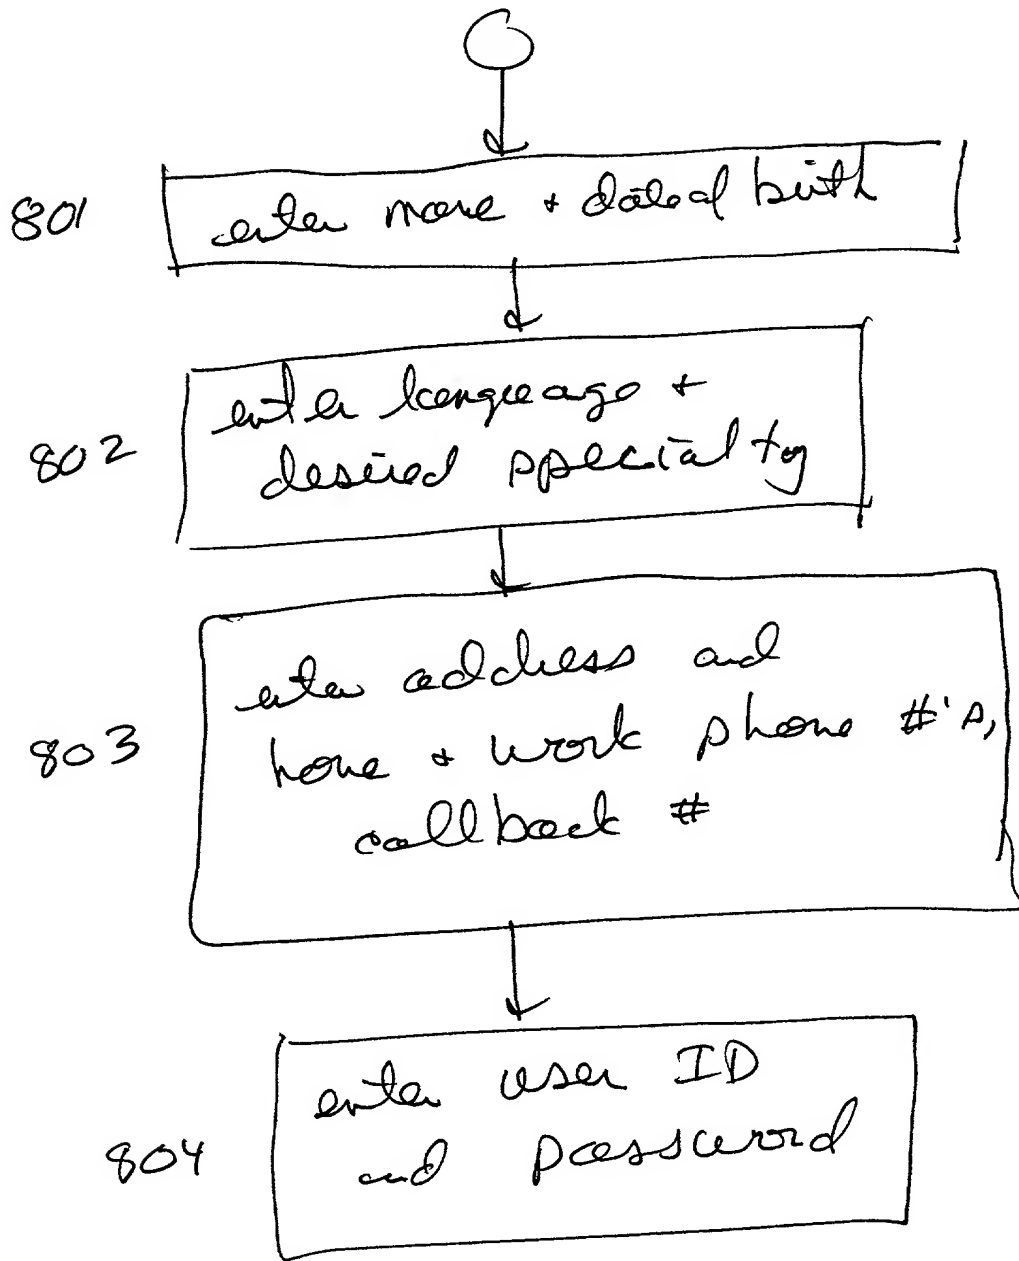 801
enter name + date of birth
802
enter language +
desired specialty
803
enter address and
home + work phone #'s,
callback #
804
enter user ID
and password